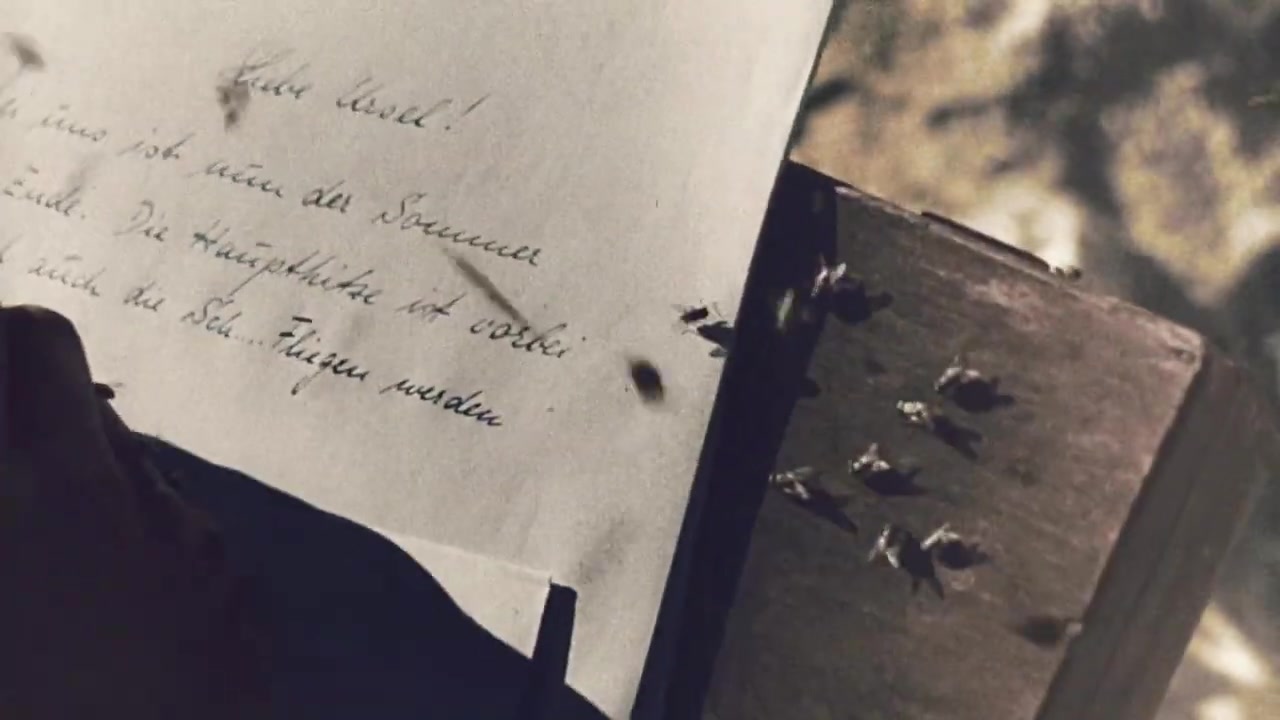 Liebe Ursel!
uns ist nun der Sommer
Ende. Die Haupthitze ist vorbei
auch die Sch... Fliegen werden